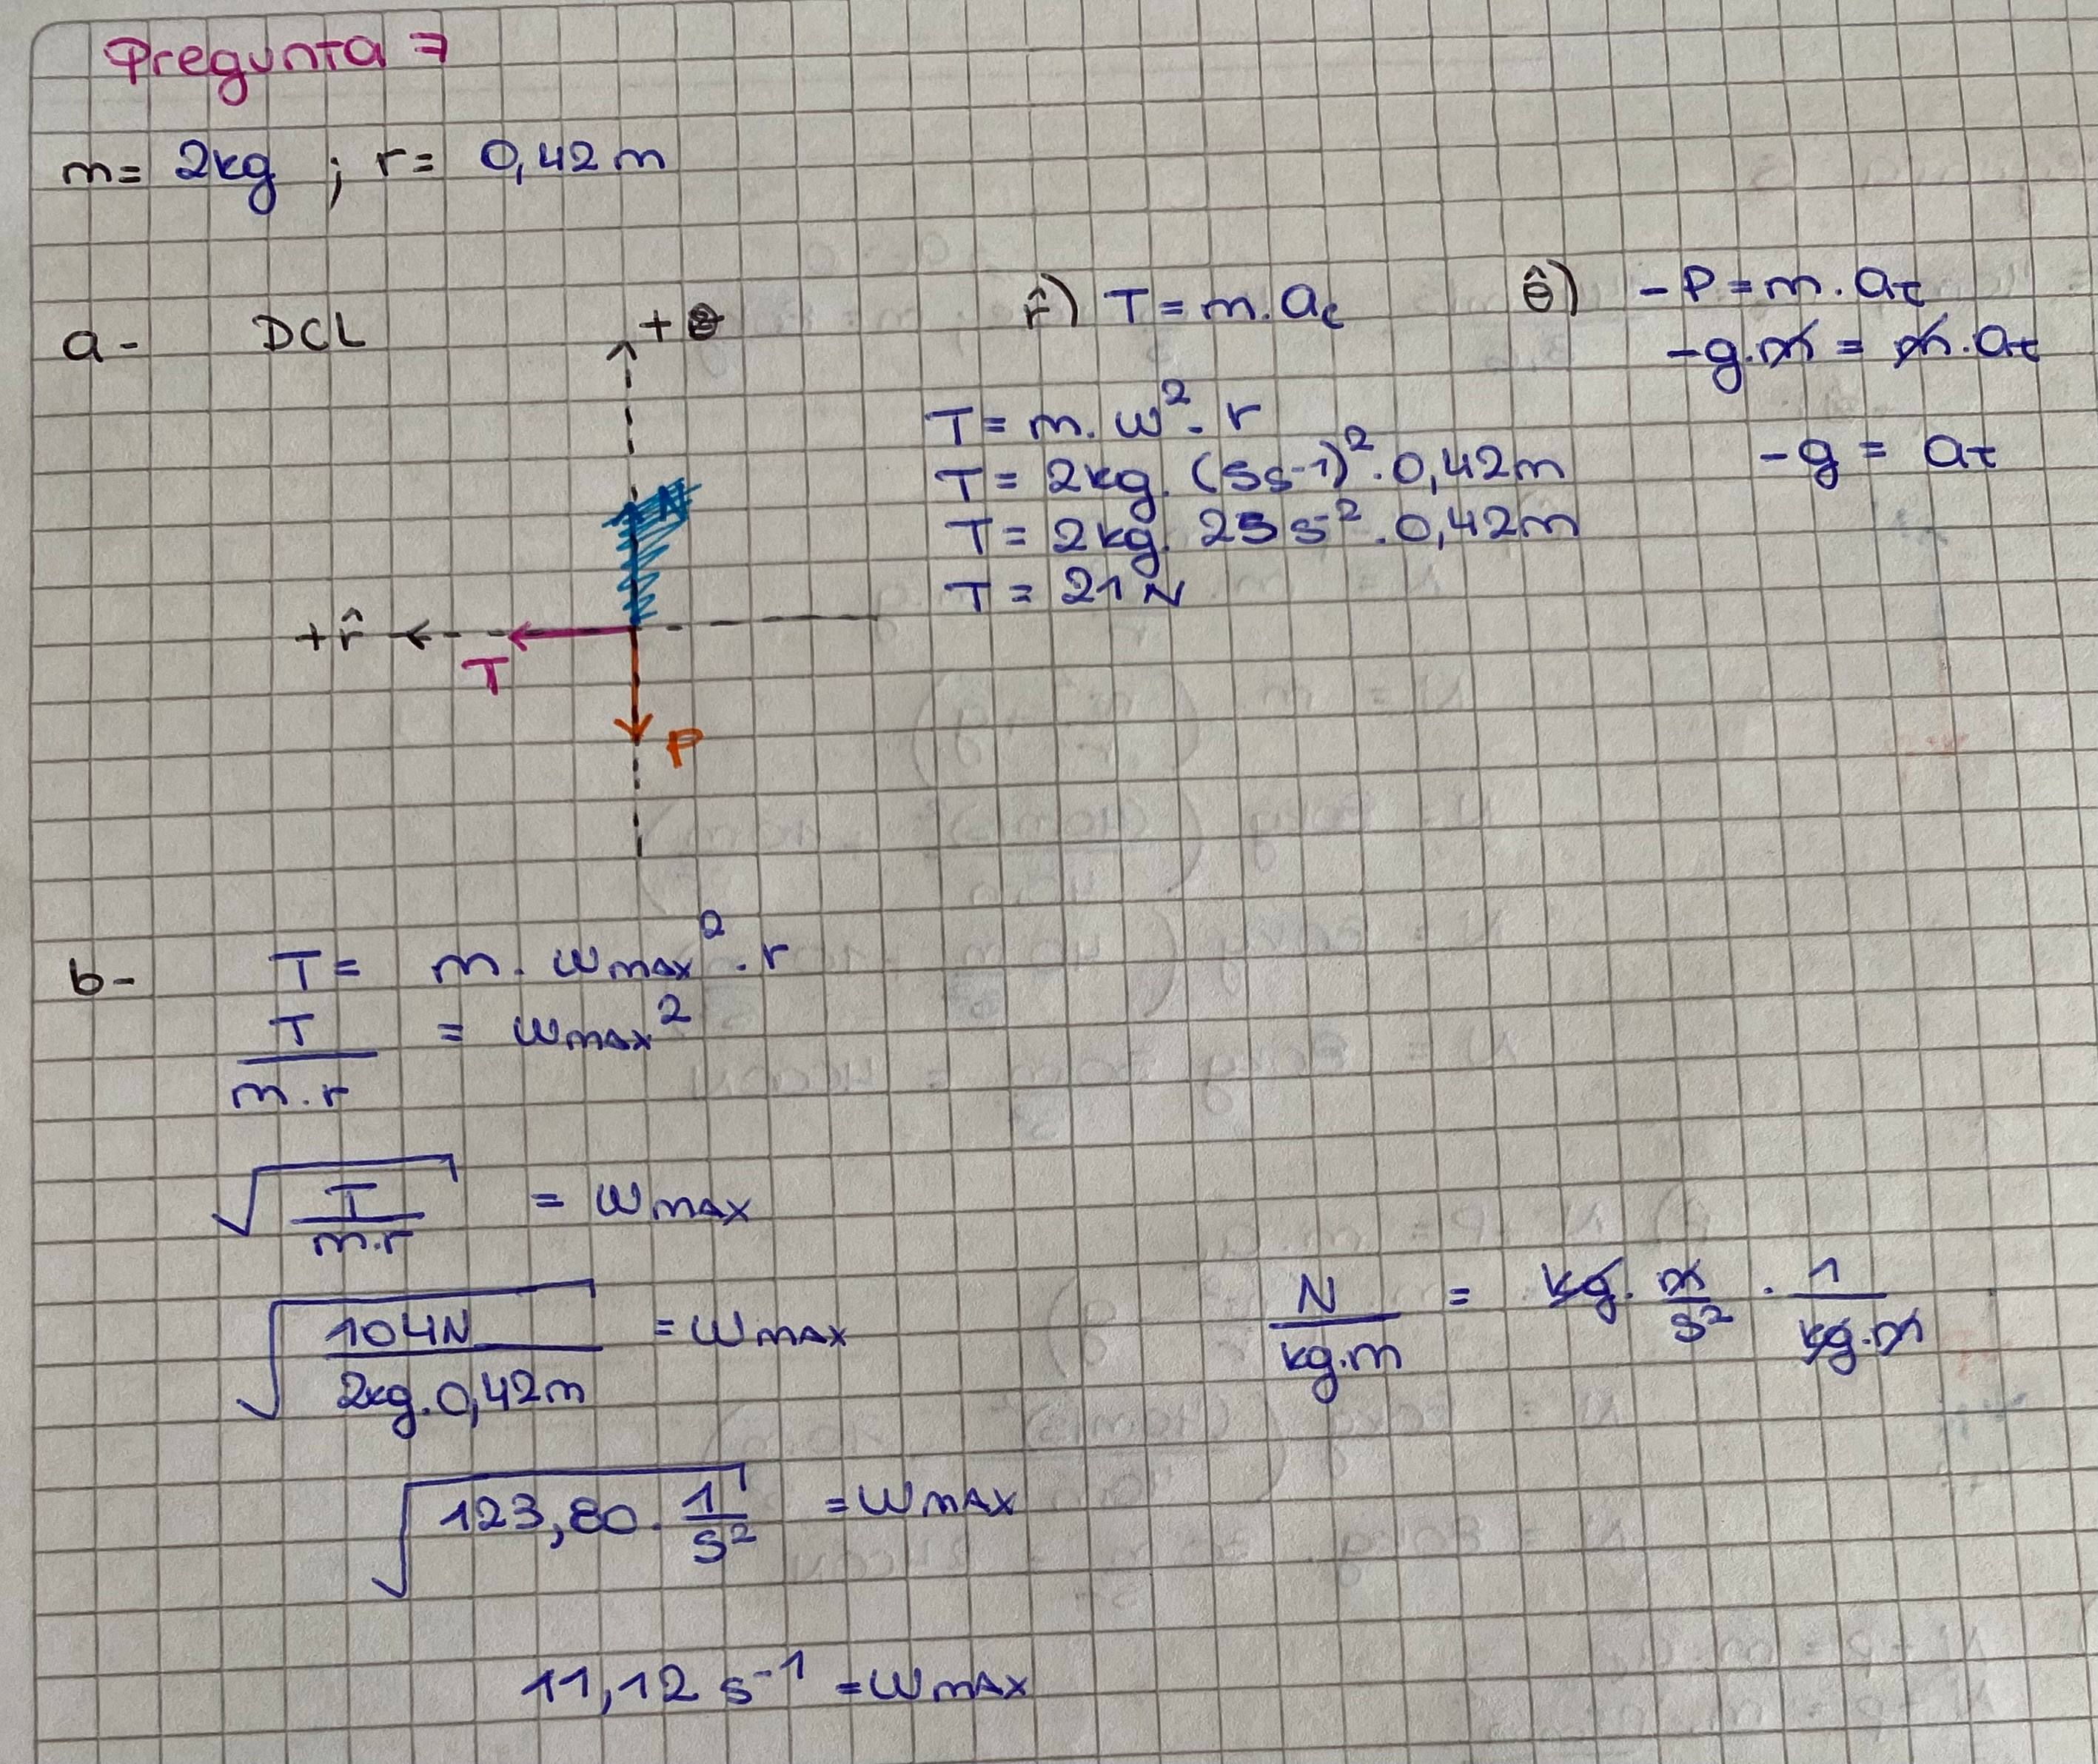 Pregunta 7
m= 2kg ; r= 0,42m
a- DCL
+ θ
+r̂
T
P
r̂) T = m. ac
T = m. ω². r
T = 2kg. (5s-1)². 0,42m
T = 2kg. 25 s⁻². 0,42m
T = 21 N
θ̂) -P = m. aτ
-g.m = m. aτ
-g = aτ
b- T = m. ωmax². r
T/m.r = ωmax²
√(T/m.r) = ωmax
√(104N/2kg.0,42m) = ωmax
N/kg.m = kg. m/s² . 1/kg.m
√(123,80. 1/s²) = ωmax
11,12 s⁻¹ = ωmax